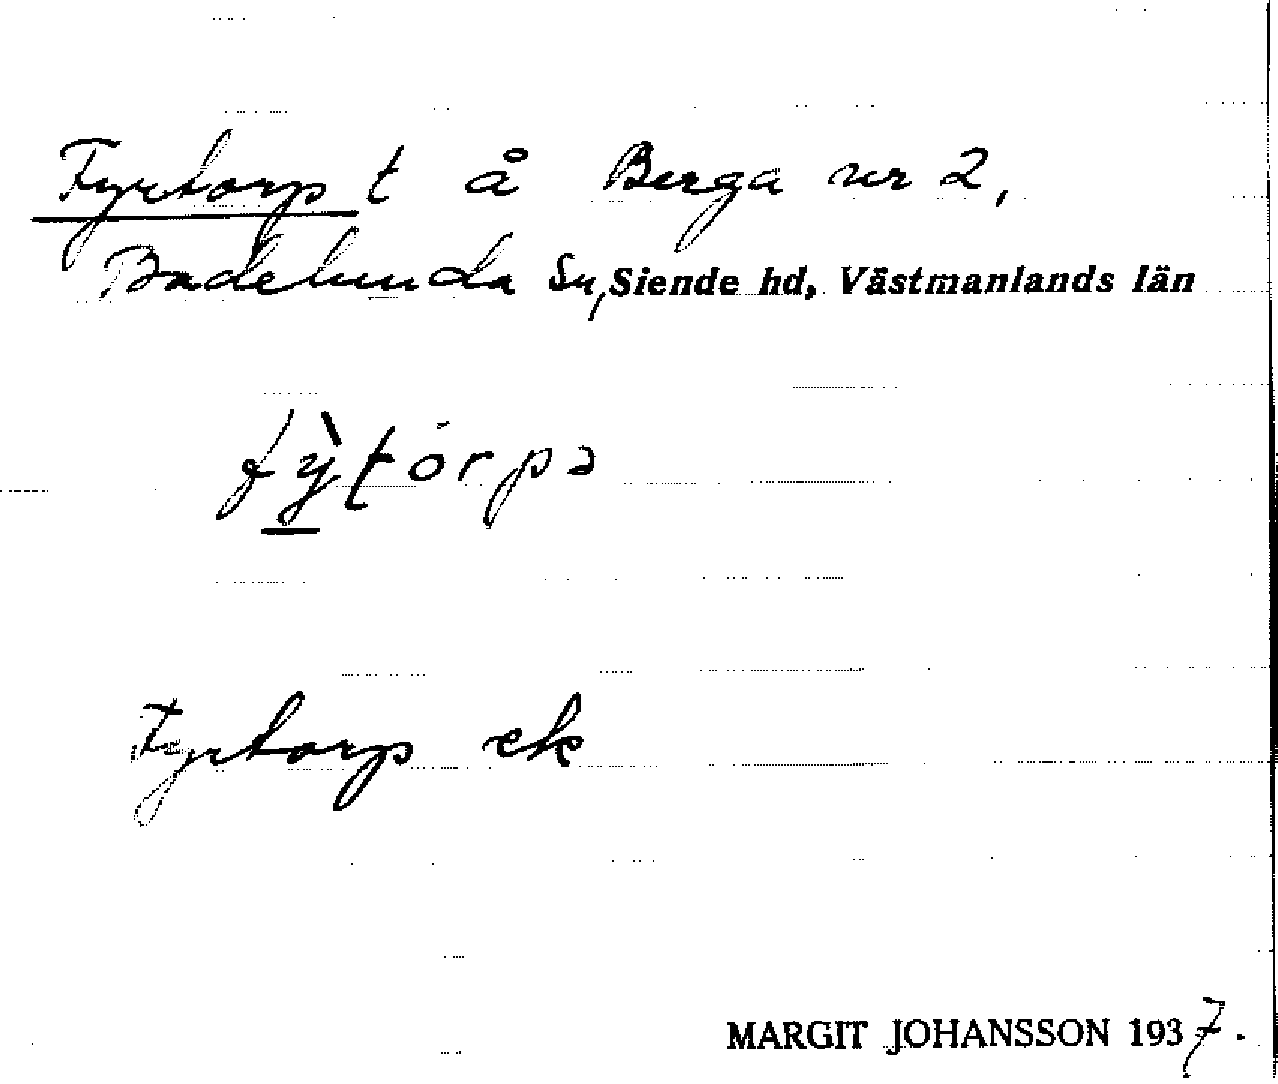 Fyrtorp t å Berga nr 2,
Badelunda Sn, Siende hd, Västmanlands län
fỳtórpə
Fyrtorp ek
MARGIT JOHANSSON 1937.